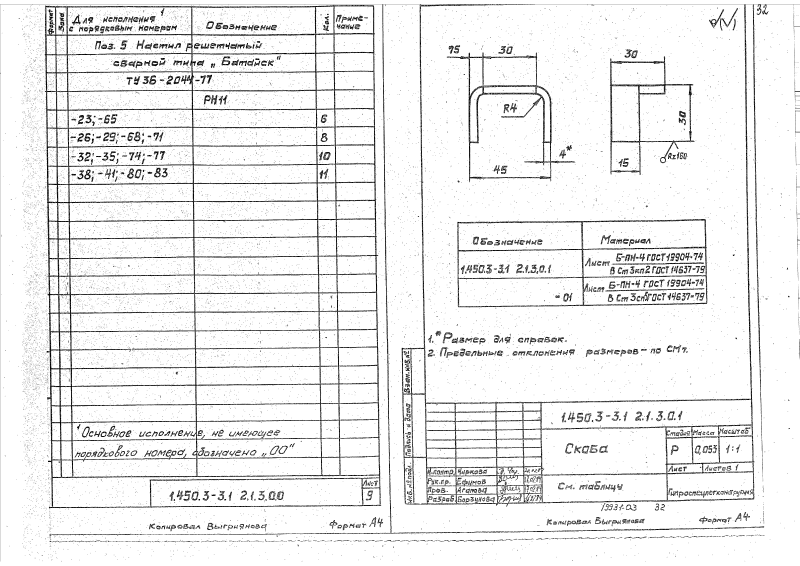 Формат
Зона
Для исполнения¹
с порядковым номером
Обозначение
Кол.
Приме-
чание
Поз. 5 Настил решетчатый
сварной типа „Батайск"
ТУ 36-2044-77
РН11
-23; -65
6
-26; -29; -68; -71
8
-32; -35; -74; -77
10
-38; -41; -80; -83
11
¹Основное исполнение, не имеющее
порядкового номера, обозначено „00"
1.450.3-3.1 2.1.3.0.0
Лист
9
Копировал Выгриянова
Формат А4
32
15
30
R4
4*
45
30
30
15
Rz160
Обозначение
Материал
1.450.3-3.1 2.1.3.0.1
Лист Б-ПН-4 ГОСТ 19904-74
В Ст 3кп2 ГОСТ 14637-79
-01
Лист Б-ПН-4 ГОСТ 19904-74
В Ст 3сп5 ГОСТ 14637-79
1.* Размер для справок.
2. Предельные отклонения размеров - по СМ7.
Взам.инв.№
Подпись и дата
Инв.№подл.
1.450.3-3.1 2.1.3.0.1
Скоба
Стадия
Масса
Масштаб
Р
0,053
1:1
Лист
Листов 1
Н.контр. Чиркова
Рук.гр. Ефимов
Пров. Агатова
Разраб. Борзунова
См. таблицу
Гипроспецлегконструкция
19931-03 32
Копировал Выгриянова
Формат А4